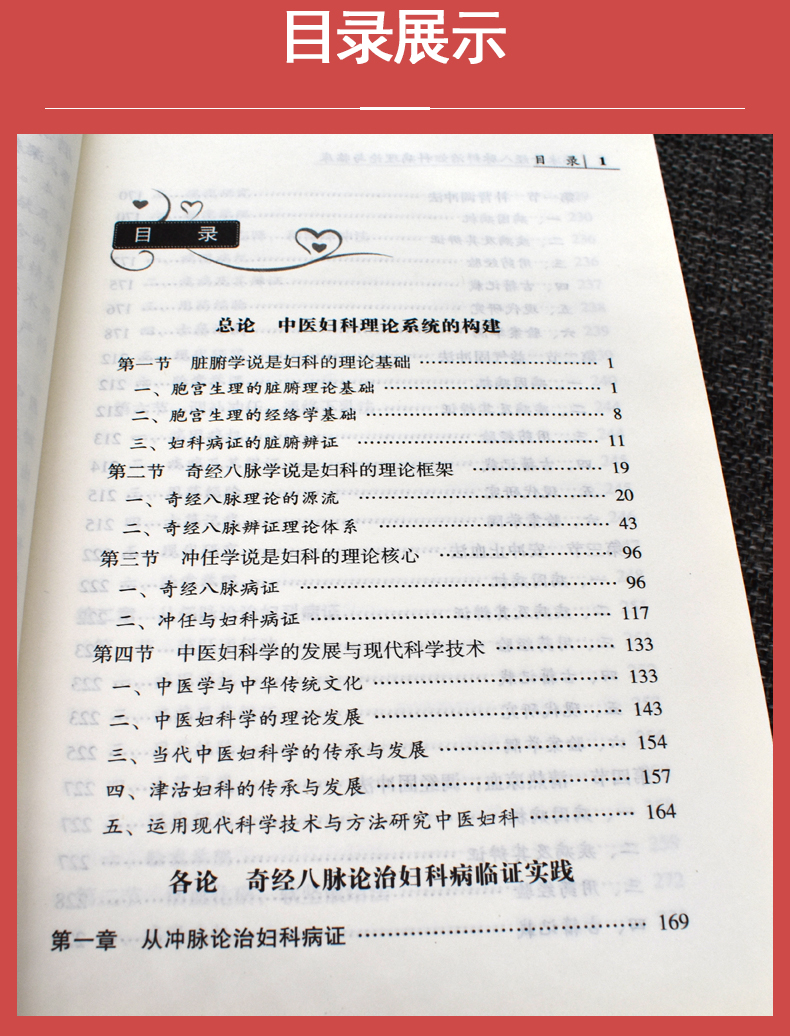 目录展示
目 录 1
目 录
总论 中医妇科理论系统的构建
第一节 脏腑学说是妇科的理论基础 ………………………… 1
一、胞宫生理的脏腑理论基础 ………………………… 1
二、胞宫生理的经络学基础 ………………………… 8
三、妇科病证的脏腑辨证 ………………………… 11
第二节 奇经八脉学说是妇科的理论框架 ………………………… 19
一、奇经八脉理论的源流 ………………………… 20
二、奇经八脉辨证理论体系 ………………………… 43
第三节 冲任学说是妇科的理论核心 ………………………… 96
一、奇经八脉病证 ………………………… 96
二、冲任与妇科病证 ………………………… 117
第四节 中医妇科学的发展与现代科学技术 ………………………… 133
一、中医学与中华传统文化 ………………………… 133
二、中医妇科学的理论发展 ………………………… 143
三、当代中医妇科学的传承与发展 ………………………… 154
四、津沽妇科的传承与发展 ………………………… 157
五、运用现代科学技术与方法研究中医妇科 ………………………… 164
各论 奇经八脉论治妇科病临证实践
第一章 从冲脉论治妇科病证 ………………………… 169